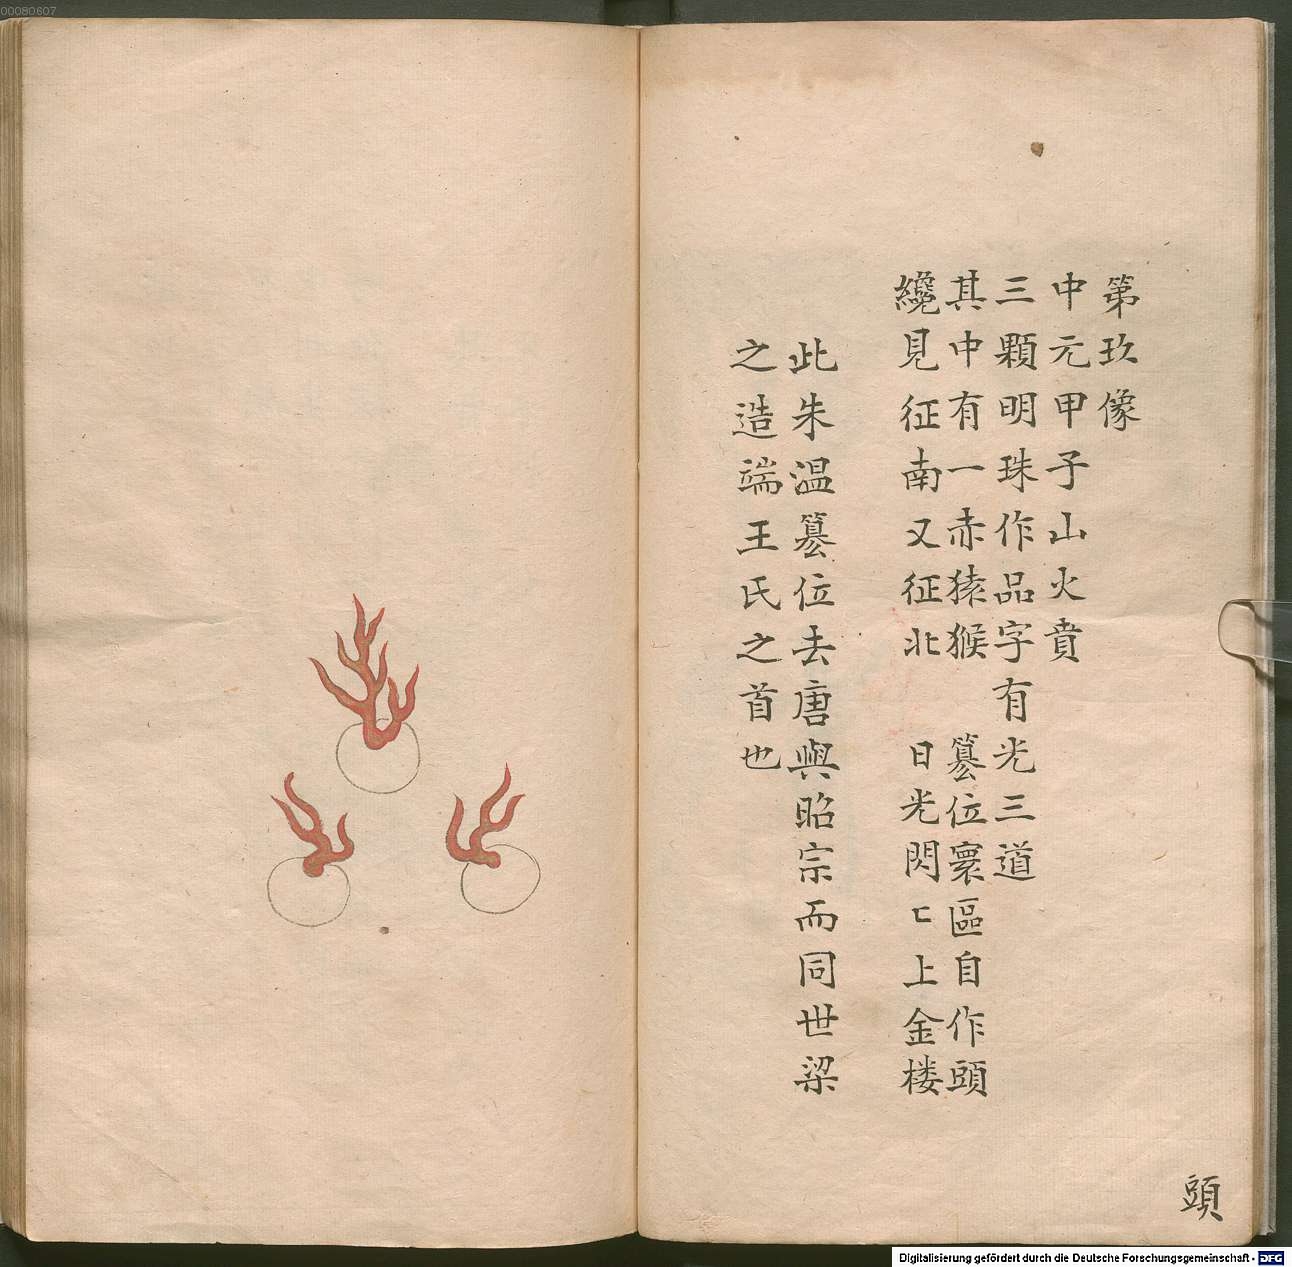 第玖像
中元甲子山火賁
三顆明珠作品字有光三道
其中有一赤猿猴　篡位寰區自作頭
纔見征南又征北　日光閃㔾上金楼
此朱温篡位去唐與昭宗而同世梁
之造端王氏之首也
頭
00080607
Digitalisierung gefördert durch die Deutsche Forschungsgemeinschaft - DFG